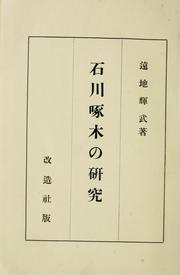 遠地輝武著
石川啄木の研究
改造社版